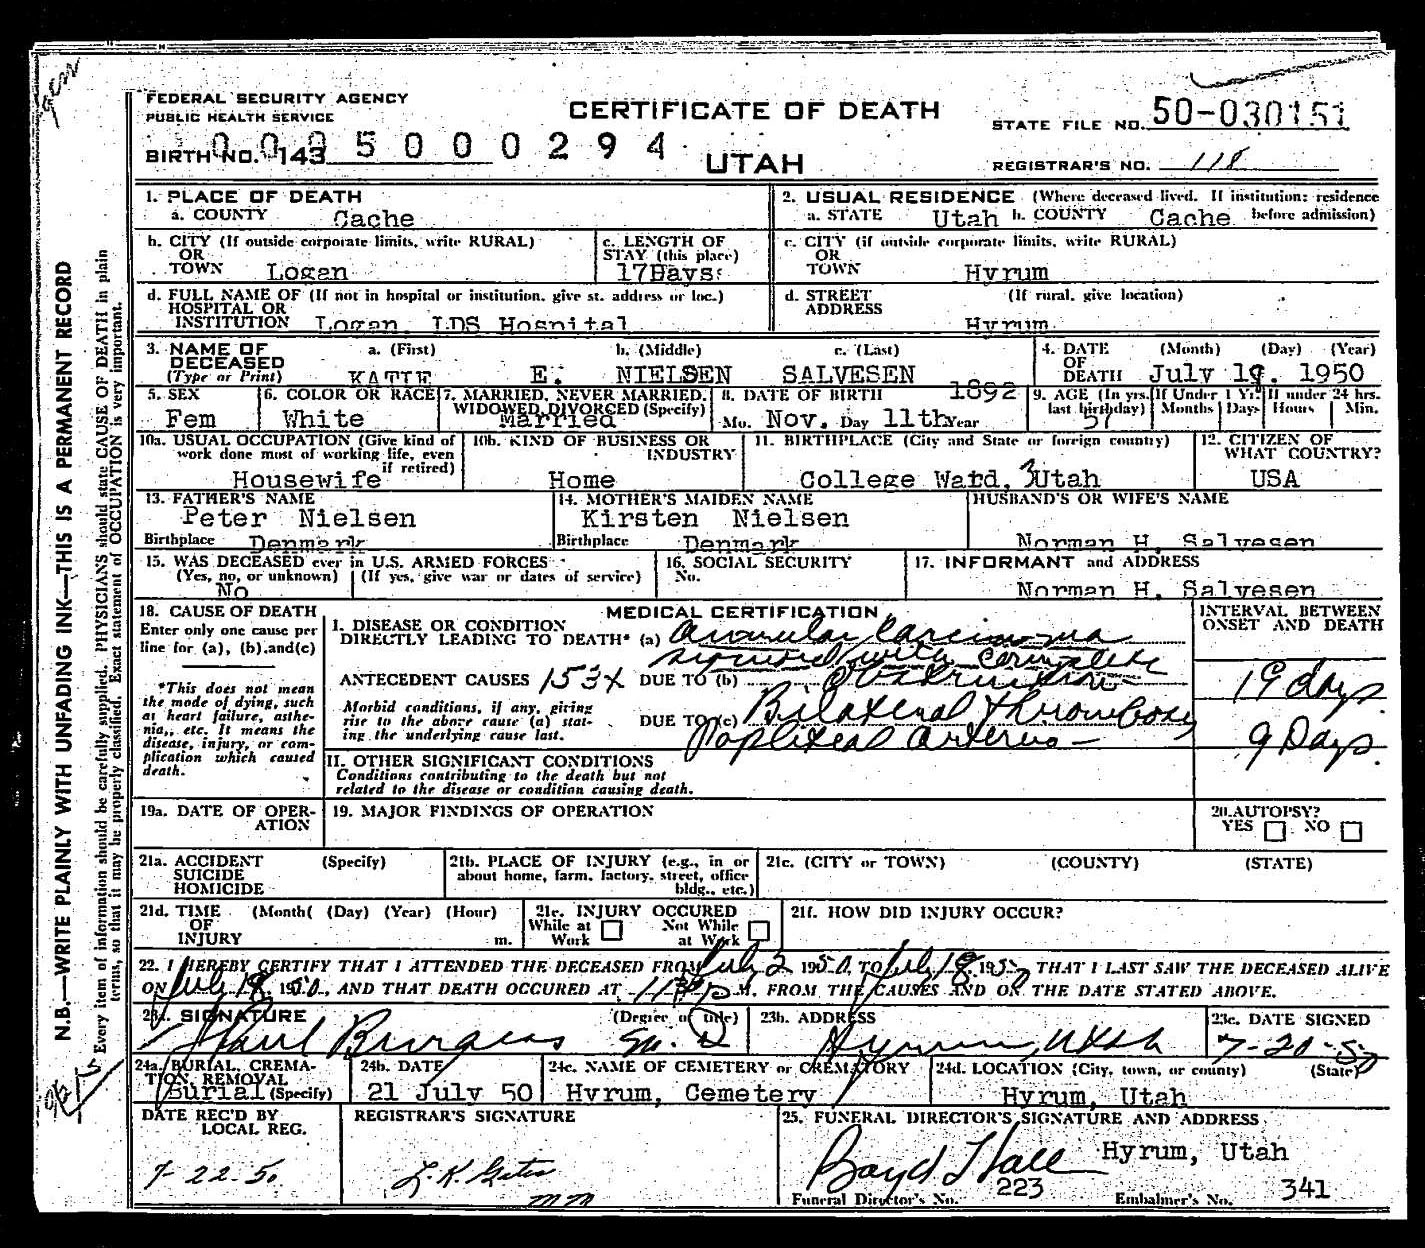 FEDERAL SECURITY AGENCY
PUBLIC HEALTH SERVICE
CERTIFICATE OF DEATH
STATE FILE NO. 50-030151
BIRTH NO. 143 5 0 0 0 0 2 9 4
UTAH
REGISTRAR'S NO. 118
N.B.—WRITE PLAINLY WITH UNFADING INK—THIS IS A PERMANENT RECORD
Every item of information should be carefully supplied. PHYSICIANS should state CAUSE OF DEATH in plain
terms, so that it may be properly classified. Exact statement of OCCUPATION is very important.
1. PLACE OF DEATH
a. COUNTY Cache
2. USUAL RESIDENCE (Where deceased lived. If institution: residence
a. STATE Utah b. COUNTY Cache before admission)
b. CITY (If outside corporate limits, write RURAL)
OR
TOWN Logan
c. LENGTH OF
STAY (this place)
17Days
c. CITY (if outside corporate limits, write RURAL)
OR
TOWN Hyrum
d. FULL NAME OF (If not in hospital or institution, give st. address or loc.)
HOSPITAL OR
INSTITUTION Logan LDS Hospital
d. STREET (If rural, give location)
ADDRESS
Hyrum
3. NAME OF a. (First) b. (Middle) c. (Last)
DECEASED
(Type or Print) KATIE E. NIELSEN SALVESEN
4. DATE (Month) (Day) (Year)
OF
DEATH July 19. 1950
5. SEX
Fem
6. COLOR OR RACE
White
7. MARRIED, NEVER MARRIED,
WIDOWED DIVORCED (Specify)
Married
8. DATE OF BIRTH 1892
Mo. Nov. Day 11th Year
9. AGE (In yrs. last birthday) 57
If Under 1 Yr. Months Days
If under 24 hrs. Hours Min.
10a. USUAL OCCUPATION (Give kind of
work done most of working life, even
if retired)
Housewife
10b. KIND OF BUSINESS OR
INDUSTRY
Home
11. BIRTHPLACE (City and State or foreign country)
College Ward, Utah
12. CITIZEN OF
WHAT COUNTRY?
USA
13. FATHER'S NAME
Peter Nielsen
Birthplace Denmark
14. MOTHER'S MAIDEN NAME
Kirsten Nielsen
Birthplace Denmark
HUSBAND'S OR WIFE'S NAME
Norman H. Salvesen
15. WAS DECEASED ever in U.S. ARMED FORCES
(Yes, no, or unknown) (If yes, give war or dates of service)
No
16. SOCIAL SECURITY
No.
17. INFORMANT and ADDRESS
Norman H. Salvesen
18. CAUSE OF DEATH
Enter only one cause per
line for (a), (b), and (c)
*This does not mean
the mode of dying, such
as heart failure, asthe-
nia,, etc. It means the
disease, injury, or com-
plication which caused
death.
MEDICAL CERTIFICATION
I. DISEASE OR CONDITION
DIRECTLY LEADING TO DEATH* (a) annular carcinoma
sigmoid with complete
ANTECEDENT CAUSES 153X DUE TO (b) obstruction
Morbid conditions, if any, giving
rise to the above cause (a) stat-
ing the underlying cause last.
DUE TO (c) Bilateral thrombosis
Popliteal arteries
II. OTHER SIGNIFICANT CONDITIONS
Conditions contributing to the death but not
related to the disease or condition causing death.
INTERVAL BETWEEN
ONSET AND DEATH
19 days
9 Days
19a. DATE OF OPER-
ATION
19. MAJOR FINDINGS OF OPERATION
20. AUTOPSY?
YES NO
21a. ACCIDENT (Specify)
SUICIDE
HOMICIDE
21b. PLACE OF INJURY (e.g., in or
about home, farm, factory, street, office
bldg., etc.)
21c. (CITY or TOWN) (COUNTY) (STATE)
21d. TIME (Month( (Day) (Year) (Hour)
OF
INJURY m.
21e. INJURY OCCURED
While at Work Not While at Work
21f. HOW DID INJURY OCCUR?
22. I HEREBY CERTIFY THAT I ATTENDED THE DECEASED FROM July 2 1950, TO July 18, 1950 THAT I LAST SAW THE DECEASED ALIVE
ON July 18, 1950, AND THAT DEATH OCCURED AT 1130 p M. FROM THE CAUSES AND ON THE DATE STATED ABOVE.
23a. SIGNATURE (Degree or title)
Paul Burgess M. D
23b. ADDRESS
Hyrum, Utah
23c. DATE SIGNED
7-20-50
24a. BURIAL, CREMA-
TION, REMOVAL
Burial (Specify)
24b. DATE
21 July 50
24c. NAME OF CEMETERY or CREMATORY
Hyrum, Cemetery
24d. LOCATION (City, town, or county) (State)
Hyrum, Utah
DATE REC'D BY
LOCAL REG.
7-22-50
REGISTRAR'S SIGNATURE
L.K. Gates
mm
25. FUNERAL DIRECTOR'S SIGNATURE AND ADDRESS
Boyd Hall Hyrum, Utah
Funeral Director's No. 223 Embalmer's No. 341